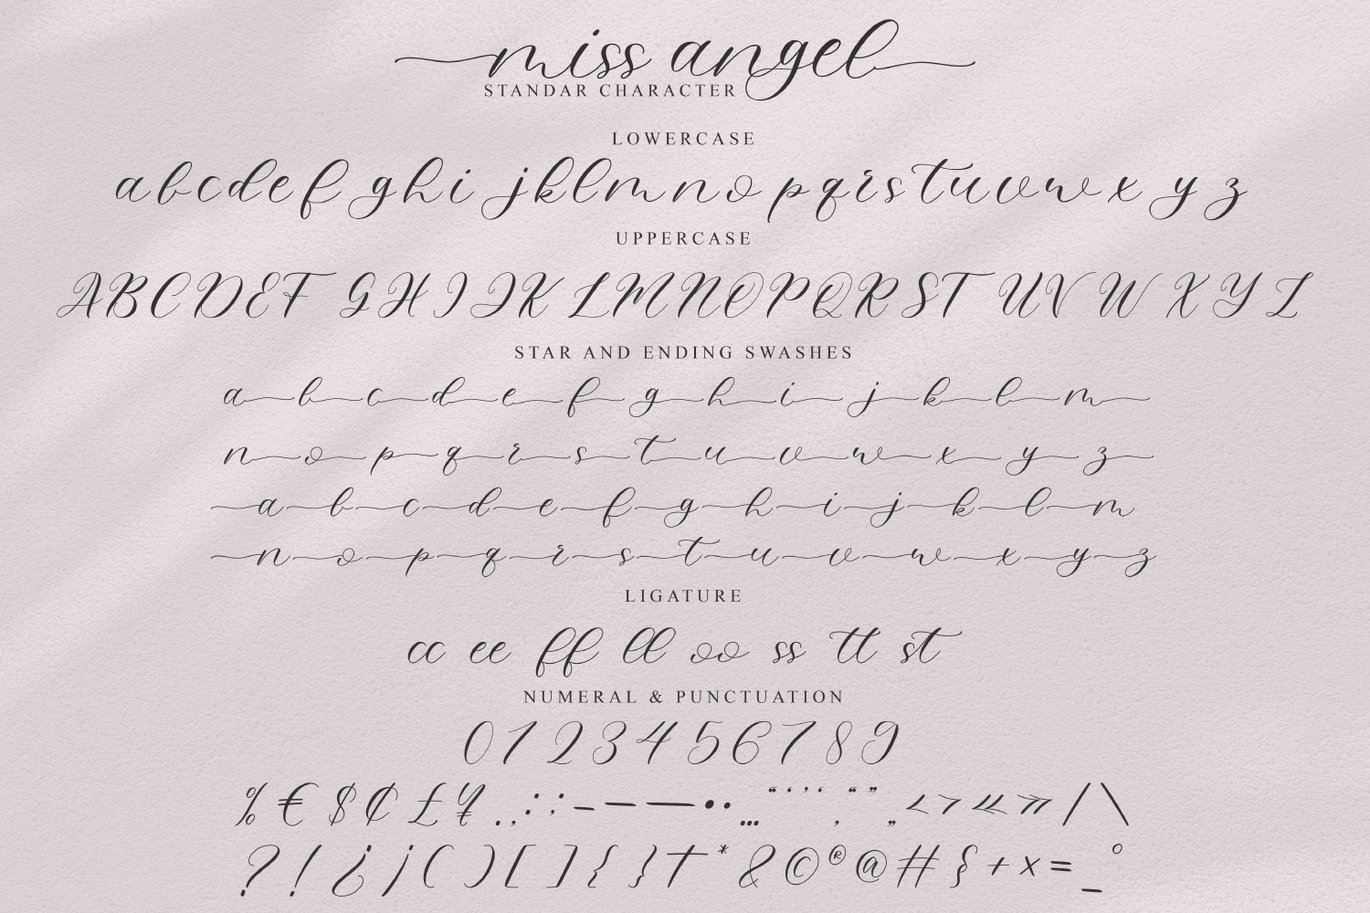 miss angel
STANDAR CHARACTER
LOWERCASE
a b c d e f g h i j k l m n o p q r s t u v w x y z
UPPERCASE
A B C D E F G H I J K L M N O P Q R S T U V W X Y Z
STAR AND ENDING SWASHES
a b c d e f g h i j k l m
n o p q r s t u v w x y z
a b c d e f g h i j k l m
n o p q r s t u v w x y z
LIGATURE
cc ee ff ll oo ss tt st
NUMERAL & PUNCTUATION
0 1 2 3 4 5 6 7 8 9
% € $ ₵ £ ¥ . , : ; - – — • · … " ' ' ‘ ‚ “ ” „ < > « » / \
? ! ¿ ¡ ( ) [ ] { } † * & © ® @ # § + x = _ °